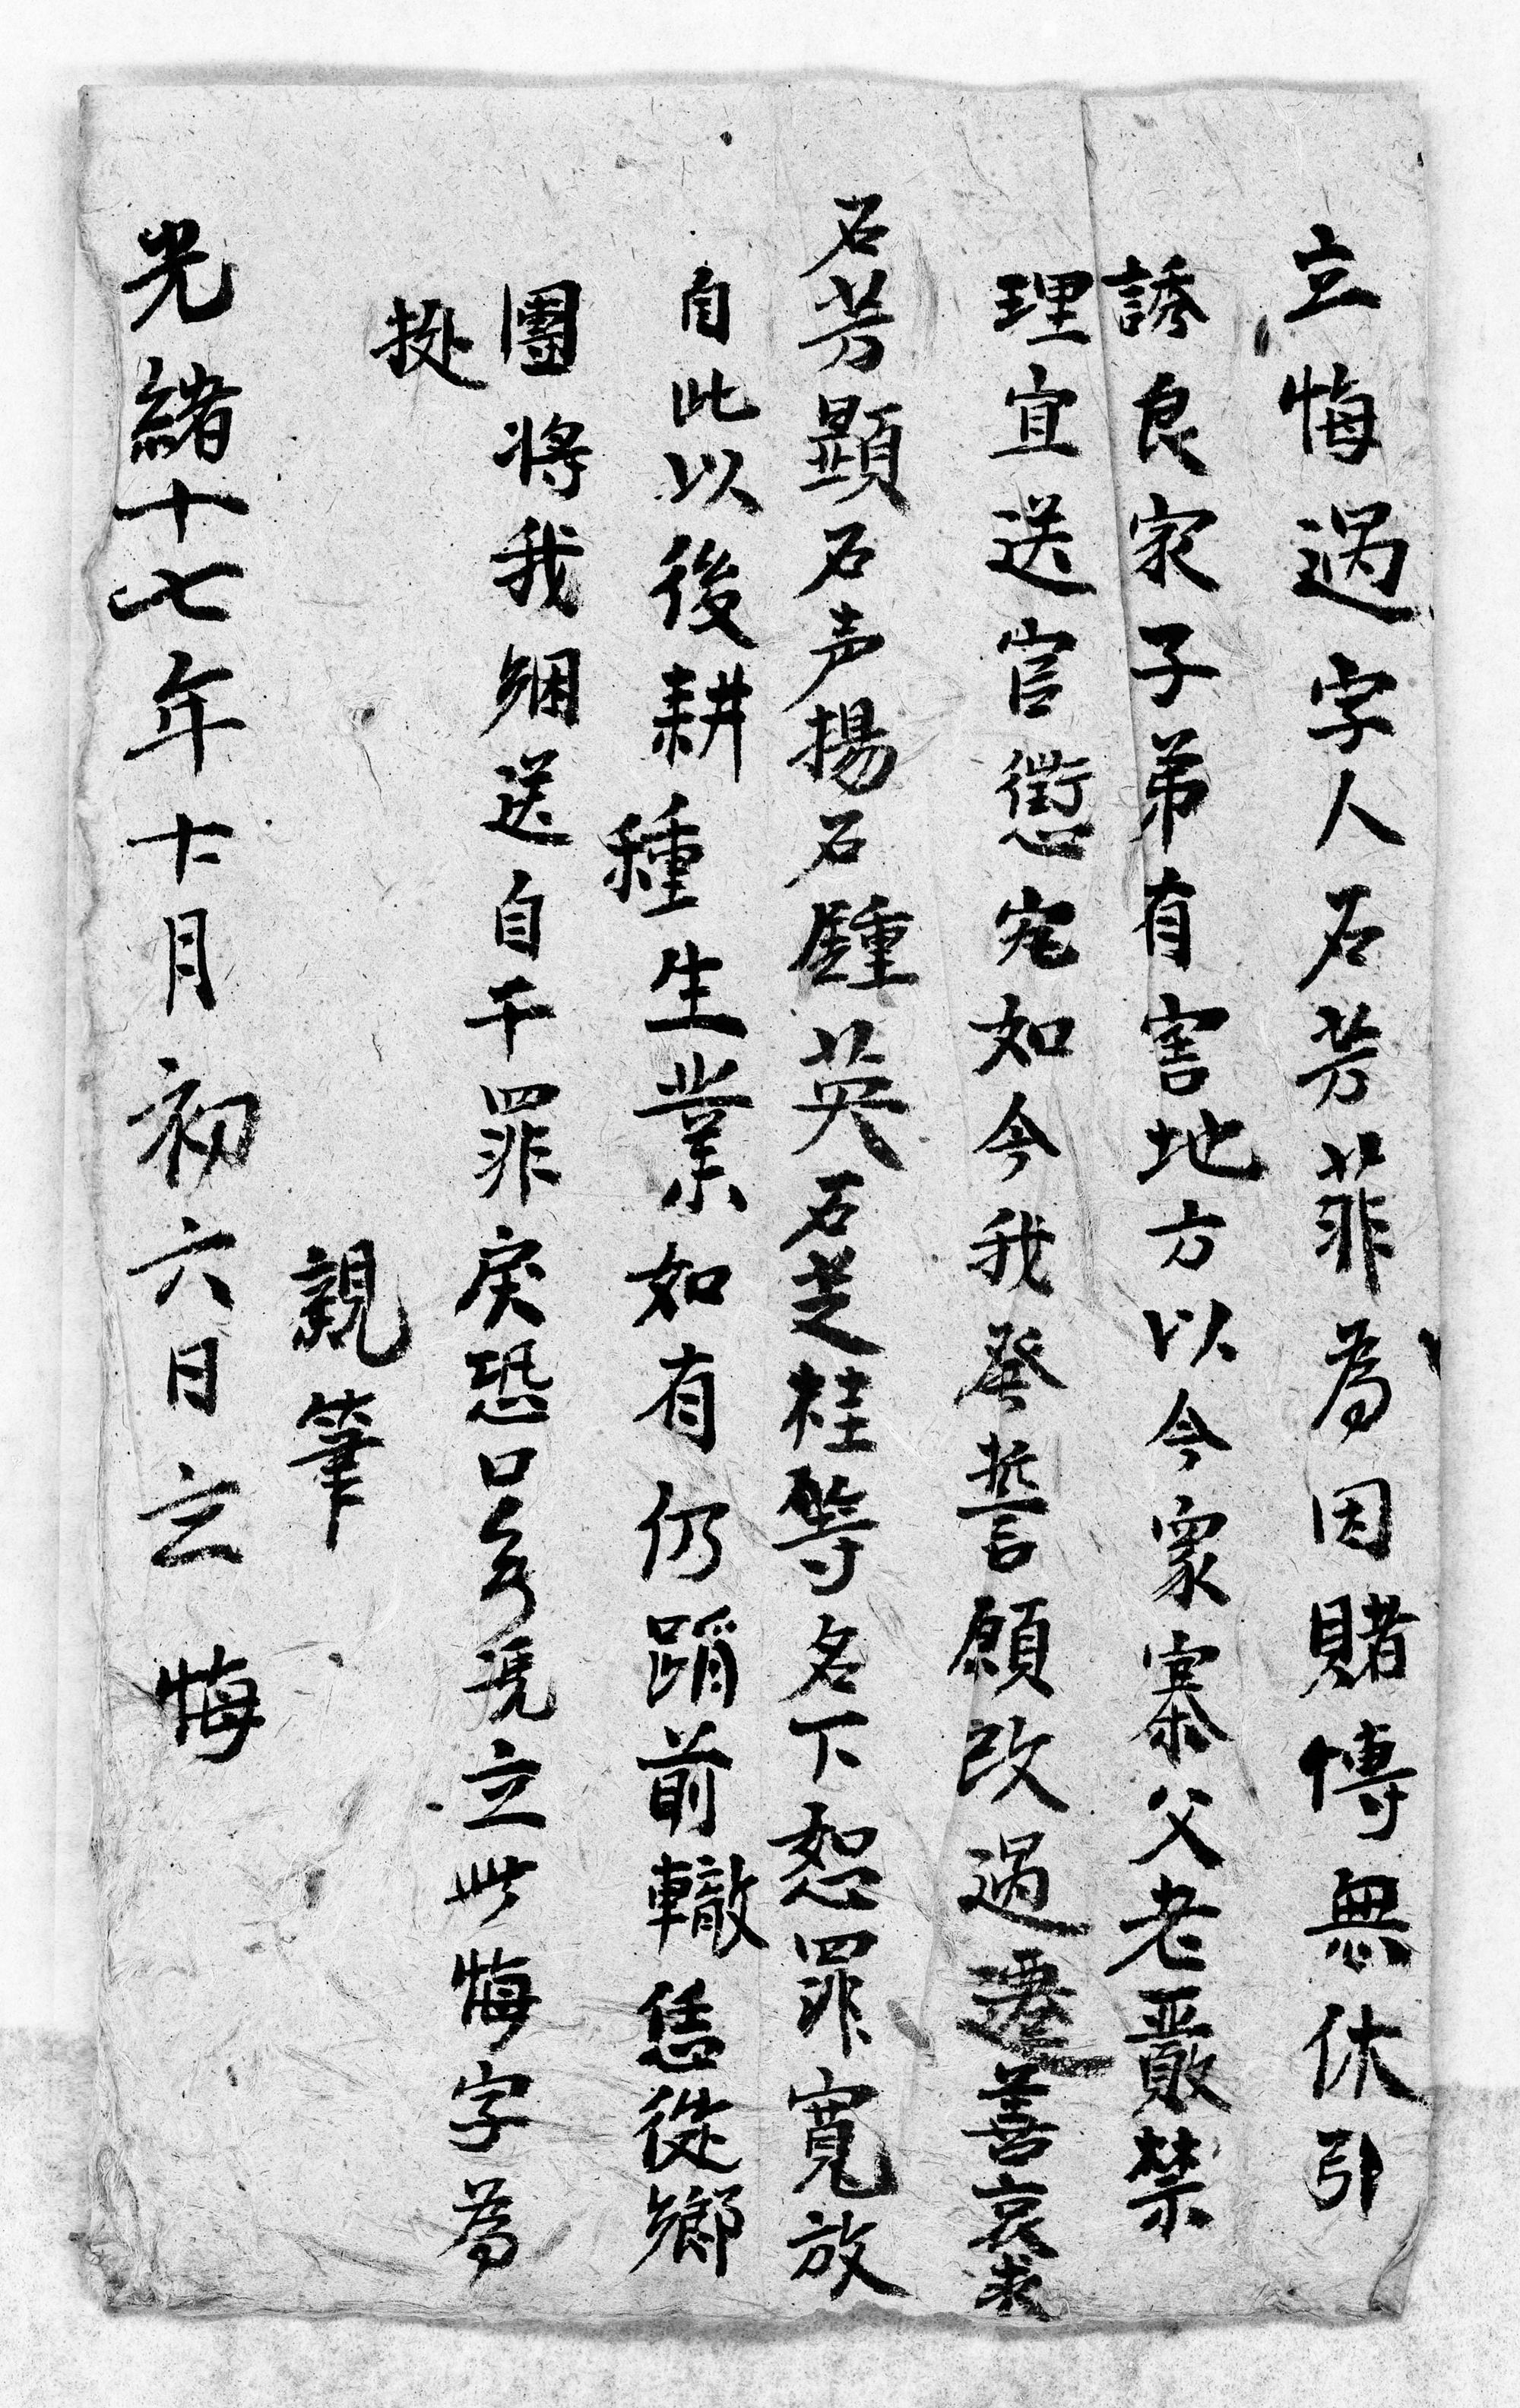 立悔过字人石芳菲為因賭博無休引
誘良家子弟有害地方以今眾寨父老嚴禁
理宜送官懲究如今我發誓願改过遷善哀求
石芳顯石声揚石鍾英石芝桂等名下恕罪寬放
自此以後耕種生業如有仍蹈前轍恁從鄉
團將我綑送自干罪戾恐口無憑立此悔字為
據
親筆
光緒十七年十月初六日立悔